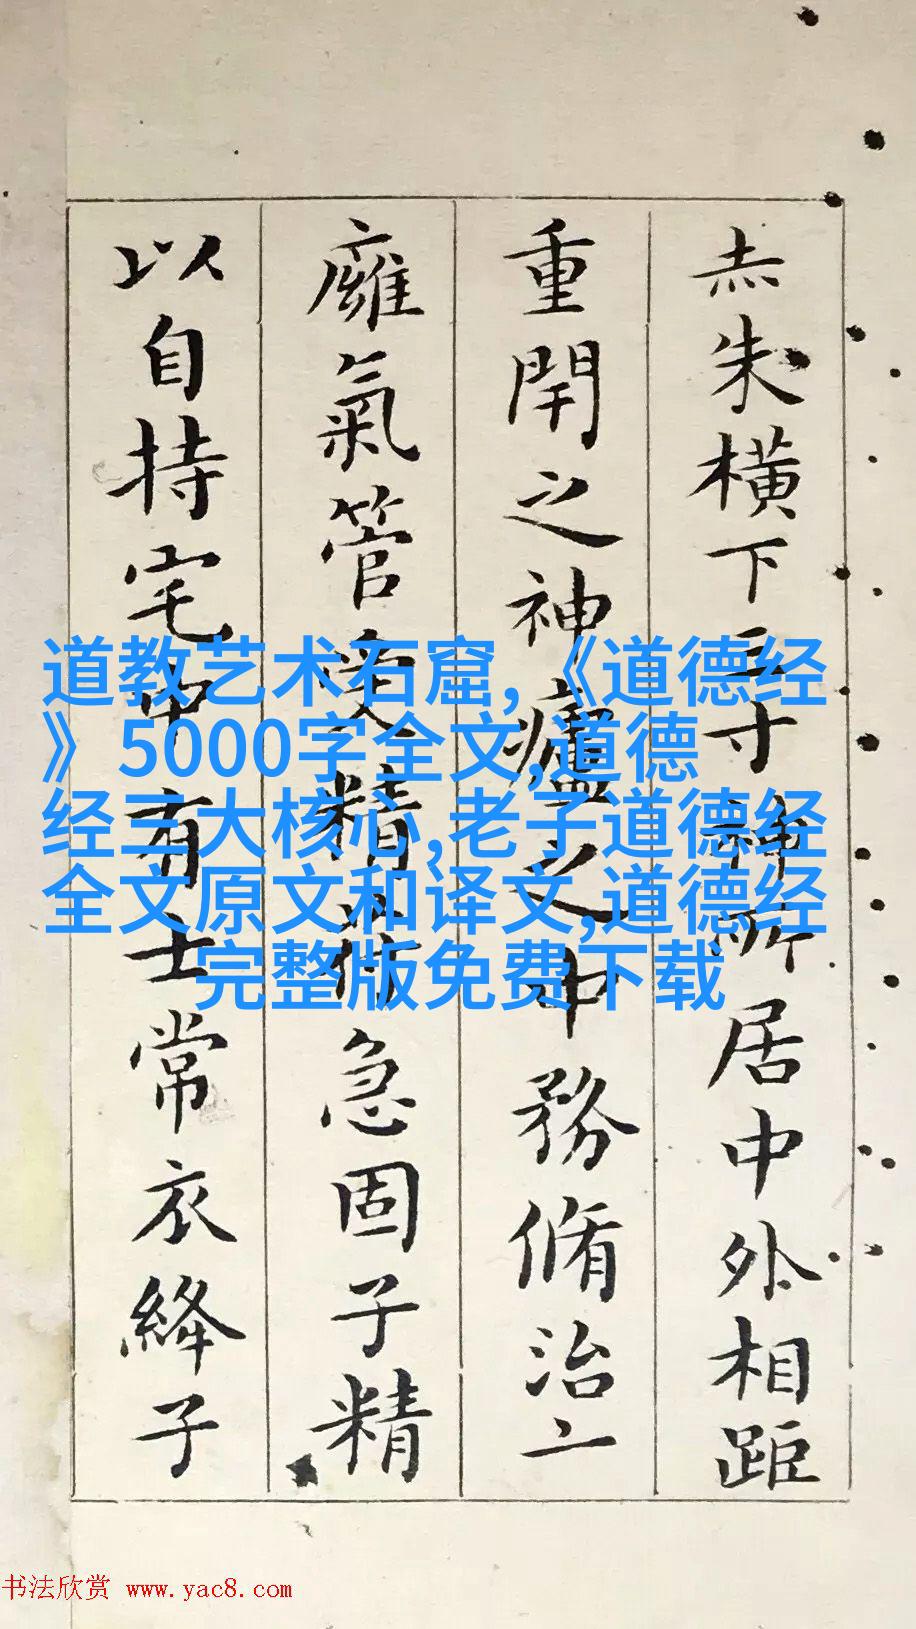 赤朱橫下三寸神所居中外相距
重閇之神廬之中務脩治二
廱氣管受精苻急固子精
以自持宅中有士常衣絳子
道教艺术石窟,《道德经
》5000字全文,道德
经三大核心,老子道德经
全文原文和译文,道德经
完整版免费下载
书法欣赏 www.yac8.com